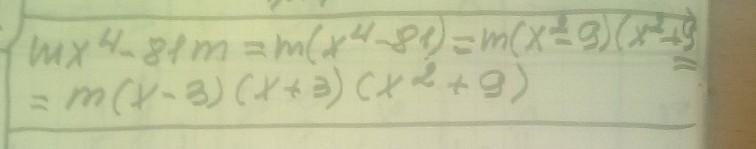 mx⁴-81m=m(x⁴-81)=m(x²-9)(x²+9
=
=m(x-3)(x+3)(x²+9)